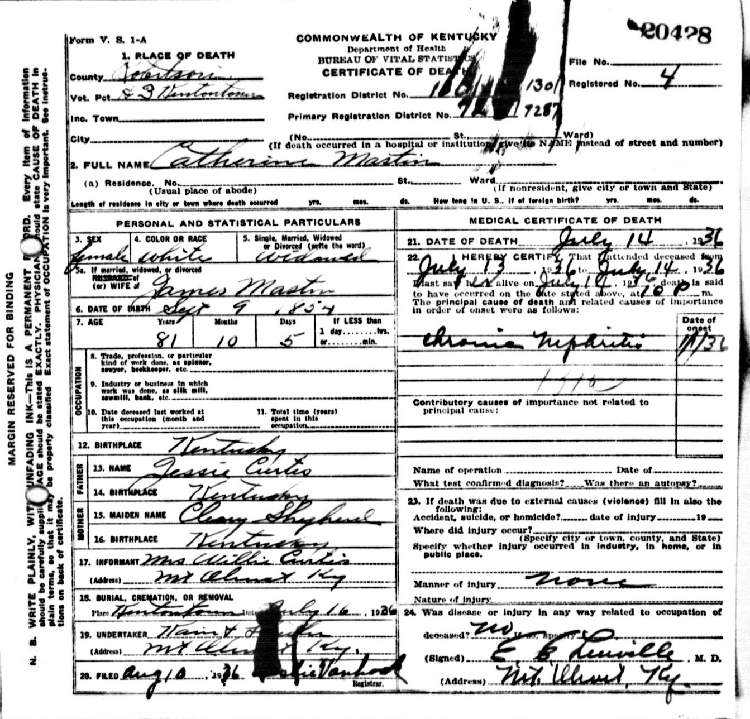 Form V. S. 1-A
COMMONWEALTH OF KENTUCKY
Department of Health
BUREAU OF VITAL STATISTICS
CERTIFICATE OF DEATH
20428
File No.
Registered No. 4
1. PLACE OF DEATH
County Robertson
Vot. Pct #3 Kentontown
Inc. Town
City
Registration District No. 1301
Primary Registration District No. 7287
(No. St. Ward)
(If death occurred in a hospital or institution, give its NAME instead of street and number)
2. FULL NAME Catherine Mastin
(a) Residence. No. St. Ward
(Usual place of abode) (If nonresident, give city or town and State)
Length of residence in city or town where death occurred yrs. mos. ds. How long in U. S., if of foreign birth? yrs. mos. ds.
PERSONAL AND STATISTICAL PARTICULARS
3. SEX female
4. COLOR OR RACE White
5. Single, Married, Widowed or Divorced (write the word) Widowed
5a. If married, widowed, or divorced
HUSBAND of
(or) WIFE of James Mastin
6. DATE OF BIRTH Sept 9 1854
7. AGE Years 81 Months 10 Days 5 If LESS than 1 day....hrs. or....min.
OCCUPATION
8. Trade, profession, or particular kind of work done, as spinner, sawyer, bookkeeper, etc.
9. Industry or business in which work was done, as silk mill, sawmill, bank, etc.
10. Date deceased last worked at this occupation (month and year)
11. Total time (years) spent in this occupation
12. BIRTHPLACE Kentucky
FATHER
13. NAME Jessie Curtis
14. BIRTHPLACE Kentucky
MOTHER
15. MAIDEN NAME Shepherd
16. BIRTHPLACE Kentucky
17. INFORMANT Mrs Willie Curtis
(Address) Mt Olivet Ky
18. BURIAL, CREMATION, OR REMOVAL
Place Kentontown Date July 16, 1936
19. UNDERTAKER
(Address) Mt Olivet Ky.
20. FILED Aug 10 1936 Leslie Vanhook
Registrar.
MEDICAL CERTIFICATE OF DEATH
21. DATE OF DEATH July 14 1936
22. I HEREBY CERTIFY That I attended deceased from
July 13, 1936 to July 14, 1936
I last saw her alive on July 14, 1936 death is said
to have occurred on the date stated above, at 10 P m.
The principal cause of death and related causes of importance in order of onset were as follows:
Date of onset
Chronic Nephritis 1/1/36
Contributory causes of importance not related to principal cause:
Name of operation Date of
What test confirmed diagnosis? Was there an autopsy?
23. If death was due to external causes (violence) fill in also the following:
Accident, suicide, or homicide? date of injury 19
Where did injury occur?
(Specify city or town, county, and State)
Specify whether injury occurred in industry, in home, or in public place.
Manner of injury none
Nature of injury
24. Was disease or injury in any way related to occupation of
deceased? No
(Signed) E B Linville, M. D.
(Address) Mt. Olivet, Ky.
MARGIN RESERVED FOR BINDING